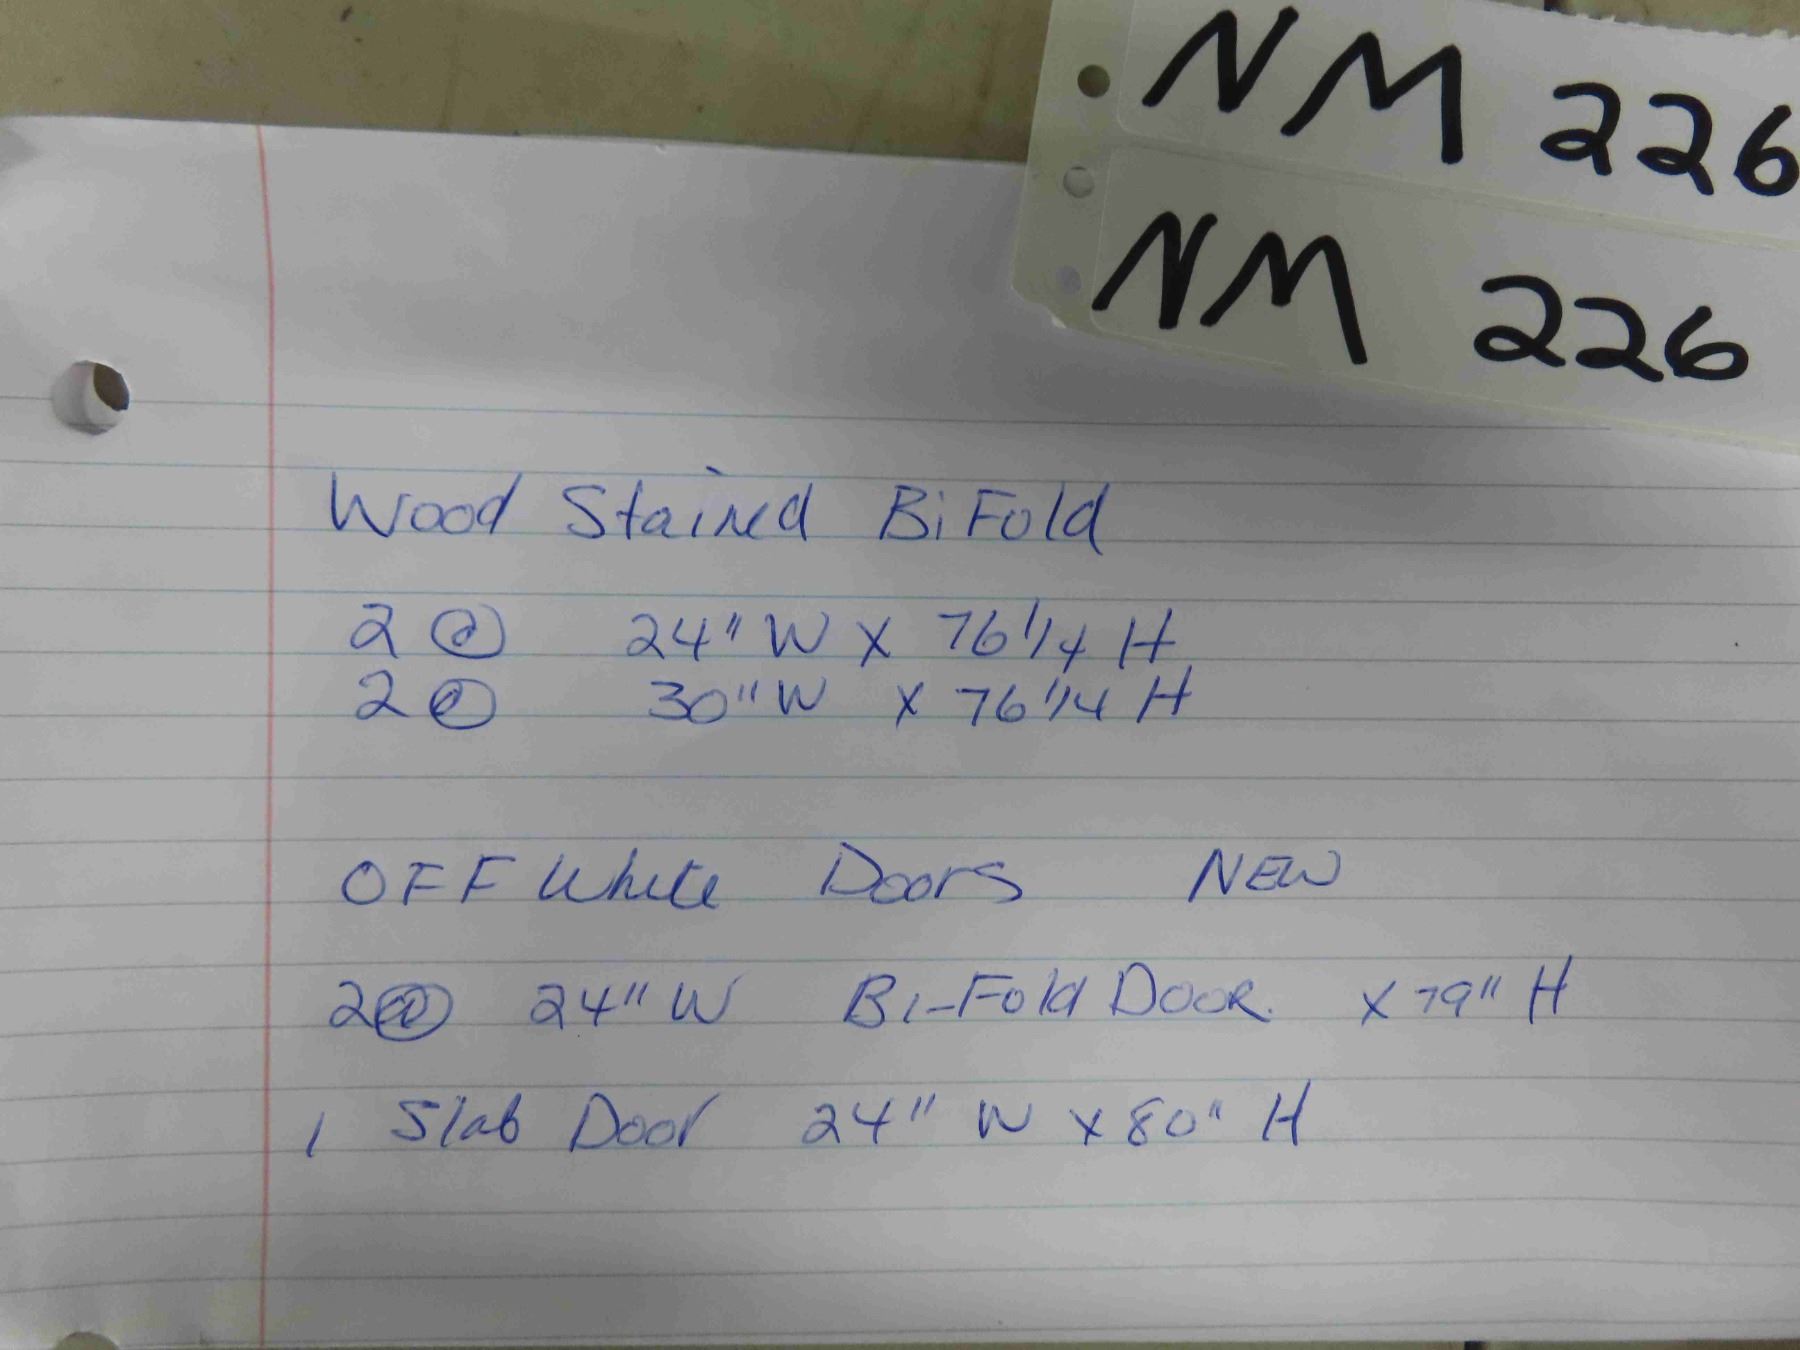 NM 226
NM 226
Wood Stained BiFold
2 @ 24" W X 76 1/4 H
2 @ 30" W X 76 1/4 H
OFF White Doors NEW
2 @ 24" W Bi-Fold DOOR. X 79" H
1 Slab Door 24" W X 80" H